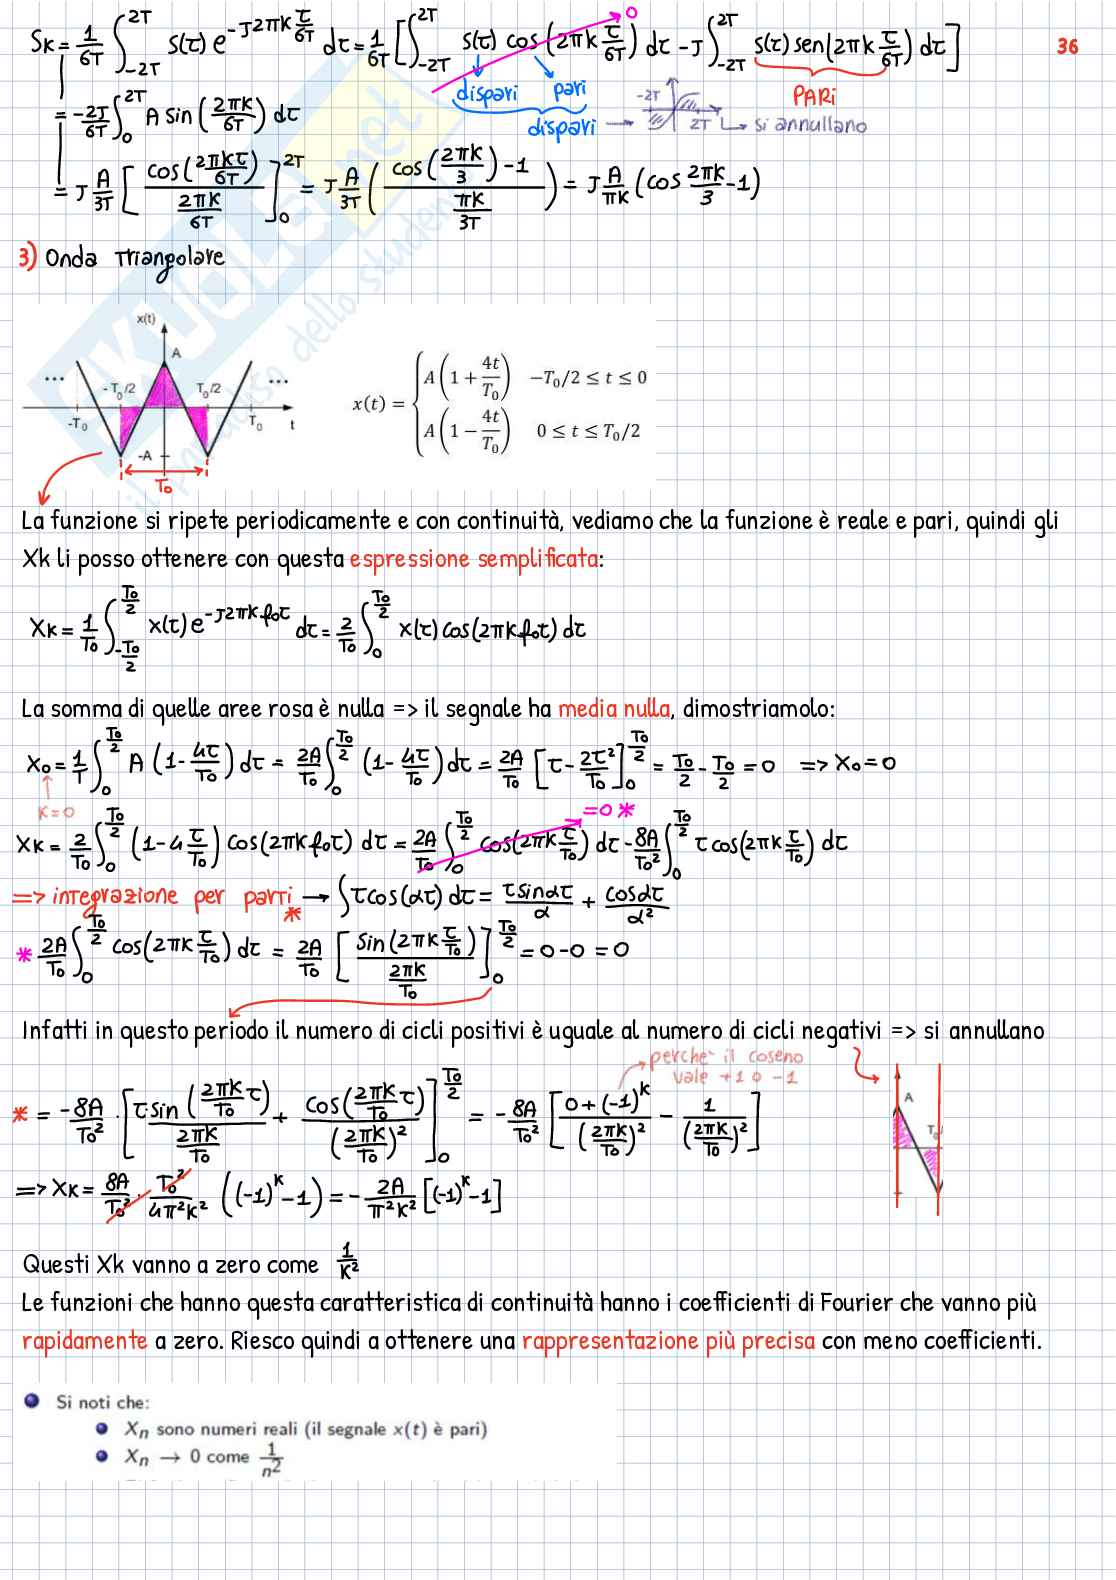 36
S_K = 1/6T ∫_{-2T}^{2T} s(τ) e^{-J2πK τ/6T} dτ = 1/6T [∫_{-2T}^{2T} s(τ) cos(2πK τ/6T) dτ - J∫_{-2T}^{2T} s(τ) sen(2πK τ/6T) dτ]
0
dispari pari
dispari
PARi
-2T 2T si annullano
= -2J/6T ∫_0^{2T} A sin(2πK/6T) dτ
= J A/3T [cos(2πKτ/6T) / (2πK/6T)]_0^{2T} = J A/3T ((cos(2πK/3) - 1) / (πK/3T)) = J A/πK (cos 2πK/3 - 1)
3) Onda Triangolare
x(t)
A
... -T0/2 T0/2 ...
-T0 T0 t
-A
T0
x(t) = { A(1 + 4t/T0) -T0/2 ≤ t ≤ 0
A(1 - 4t/T0) 0 ≤ t ≤ T0/2
La funzione si ripete periodicamente e con continuità, vediamo che la funzione è reale e pari, quindi gli
Xk li posso ottenere con questa espressione semplificata:
X_K = 1/T0 ∫_{-T0/2}^{T0/2} x(τ) e^{-J2πK f0τ} dτ = 2/T0 ∫_0^{T0/2} x(τ) cos(2πK f0τ) dτ
La somma di quelle aree rosa è nulla => il segnale ha media nulla, dimostriamolo:
X0 = 1/T ∫_0^{T0/2} A (1 - 4τ/T0) dτ = 2A/T0 ∫_0^{T0/2} (1 - 4τ/T0) dτ = 2A/T0 [τ - 2τ²/T0]_0^{T0/2} = T0/2 - T0/2 = 0 => X0 = 0
K=0
=0 *
X_K = 2/T0 ∫_0^{T0/2} (1 - 4 τ/T0) cos(2πK f0τ) dτ = 2A/T0 ∫_0^{T0/2} cos(2πK τ/T0) dτ - 8A/T0² ∫_0^{T0/2} τ cos(2πK τ/T0) dτ
=> integrazione per parti * → ∫τ cos(ατ) dτ = τ sin ατ/α + cos ατ/α²
* 2A/T0 ∫_0^{T0/2} cos(2πK τ/T0) dτ = 2A/T0 [sin(2πK τ/T0) / (2πK/T0)]_0^{T0/2} = 0 - 0 = 0
Infatti in questo periodo il numero di cicli positivi è uguale al numero di cicli negativi => si annullano
perche' il coseno
vale +1 o -1
* = -8A/T0² · [τ sin(2πK/T0 τ) / (2πK/T0) + cos(2πK/T0 τ) / (2πK/T0)²]_0^{T0/2} = -8A/T0² [(0 + (-1)^K) / (2πK/T0)² - 1/(2πK/T0)²]
A
T0
=> X_K = 8A/T0² · T0²/4π²K² ((-1)^K - 1) = -2A/π²K² [(-1)^K - 1]
Questi Xk vanno a zero come 1/K²
Le funzioni che hanno questa caratteristica di continuità hanno i coefficienti di Fourier che vanno più
rapidamente a zero. Riesco quindi a ottenere una rappresentazione più precisa con meno coefficienti.
Si noti che:
X_n sono numeri reali (il segnale x(t) è pari)
X_n → 0 come 1/n²